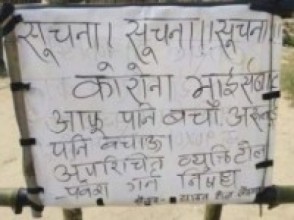 सूचना! सूचना!!! सूचना!!!
कोरोना भाईरसबाट
आफू पनि बचौं अरुलाई
पनि बचाऔं।
अपरिचित व्यक्ति टोल
प्रवेश गर्न निषेध